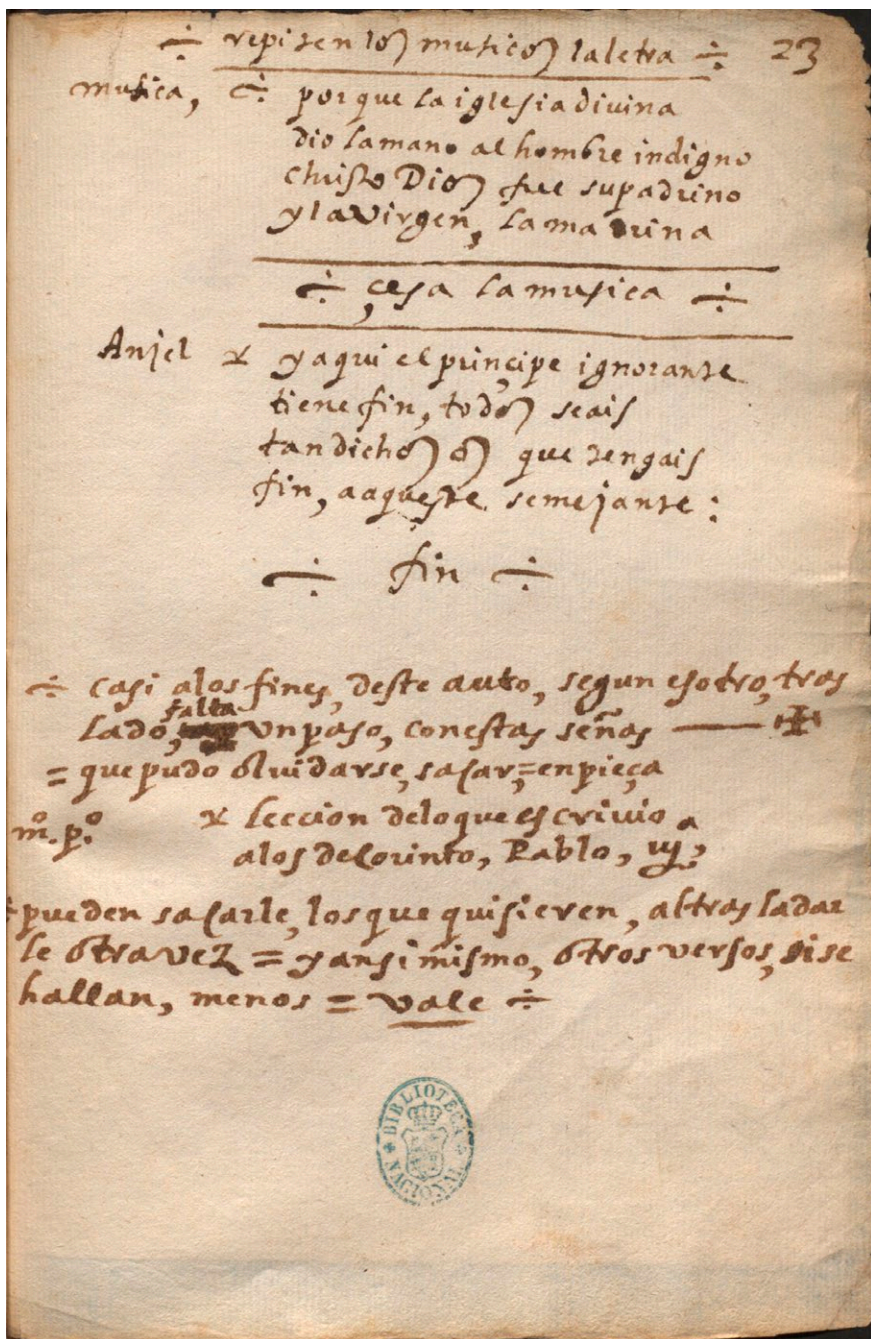 ÷ repiten los musicos la letra ÷ 23
musica, ÷ porque la iglesia diuina
dio la mano al hombre indigno
christo Dios fue su padrino
y la Virgen, la madrina
÷ çesa la musica ÷
Anjel y aqui el prinçipe ignorante
tiene fin, todos seais
tan dichosos que tengais
fin, a aqueste semejante:
÷ fin ÷
÷ casi alos fines, deste auto, segun esotro, tras
falta
lado, un paso, con estas señas —
= que pudo oluidarse, sacar, = enpieça
mº. pº. leccion delo que escriuio
alos de Corinto, Pablo,
pueden sacarle, los que quisieren, al trasladar
le otra vez = y ansi mismo, otros versos, si se
hallan, menos = vale ÷
BIBLIOTECA
NACIONAL